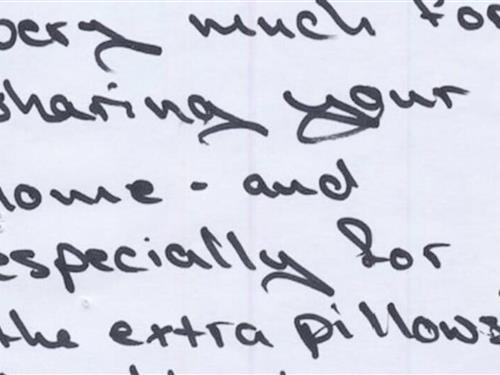 very much for
sharing your
home - and
especially for
the extra pillows